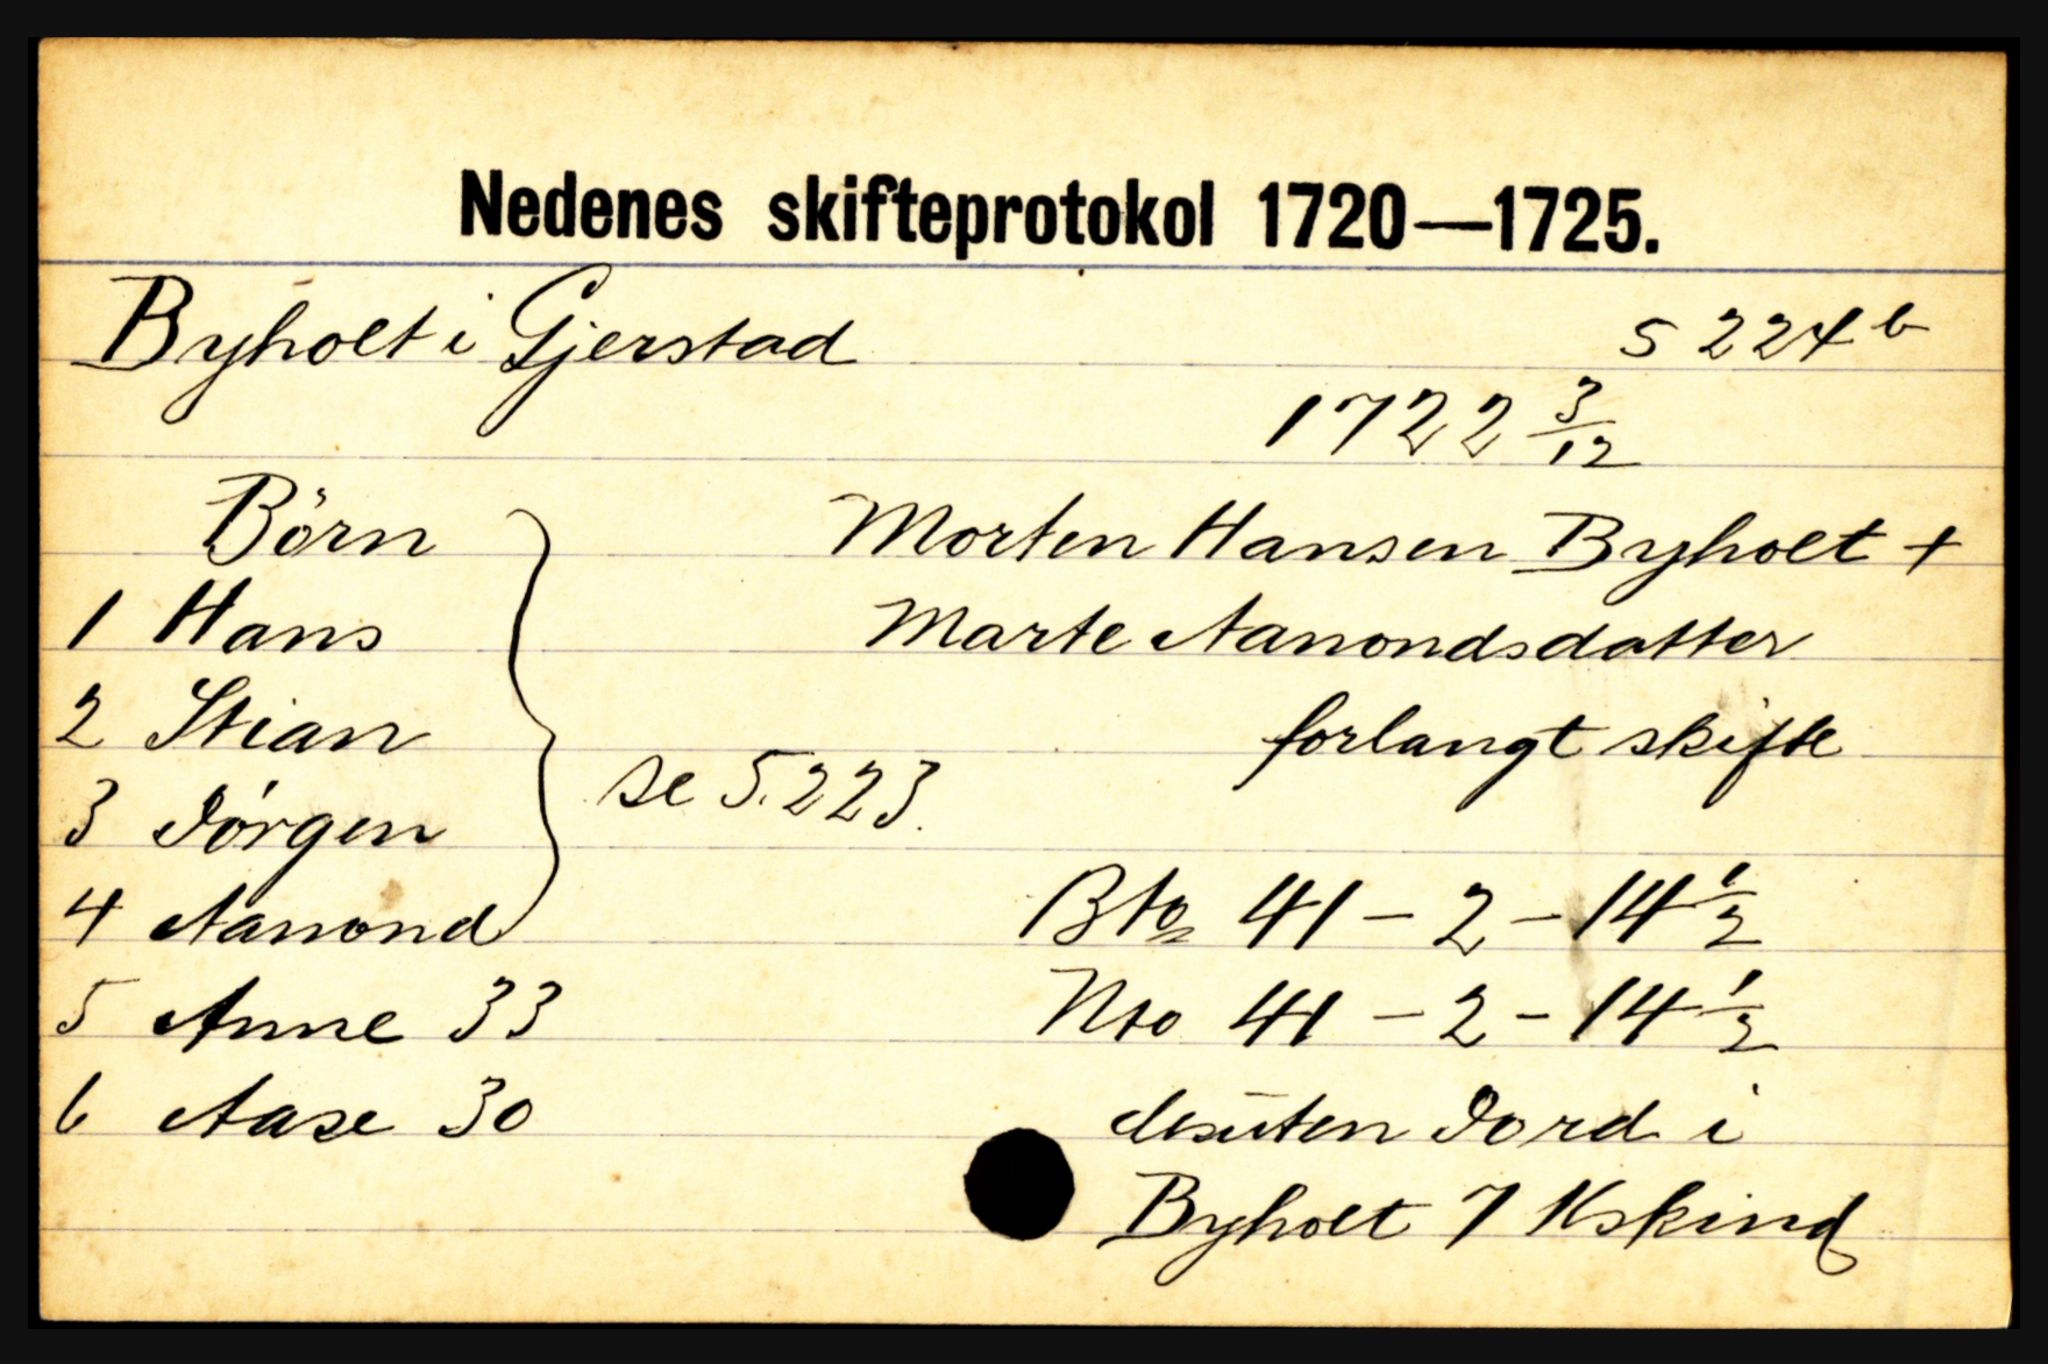 Nedenes skifteprotokol 1720—1725.
Byholt i Gjerstad s 224 b
1722 3/12
Börn Morten Hansen Byholt +
1 Hans Marte Aanondsdatter
2 Stian forlangt skifte
se S. 223.
3 Jörgen
4 Aanond Bto 41 - 2 - 14 1/2
5 Anne 33 Nto 41 - 2 - 14 1/2
6 Aase 30 desuten Jord i
Byholt 7 Kskind